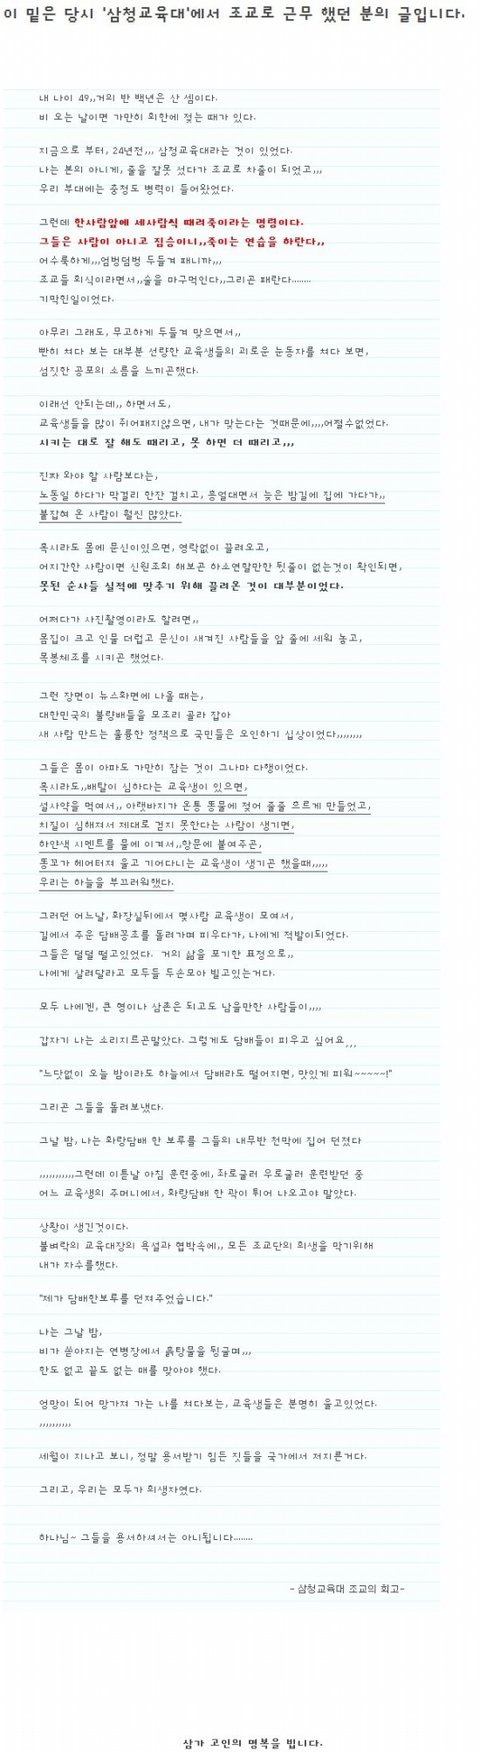 이 밑은 당시 '삼청교육대'에서 조교로 근무 했던 분의 글입니다.
내 나이 49,,거의 반 백년은 산 셈이다.
비 오는 날이면 가만히 회한에 젖는 때가 있다.
지금으로 부터, 24년전,,, 삼청교육대라는 것이 있었다.
나는 본의 아니게, 줄을 잘못 섰다가 조교로 차출이 되었고,,,
우리 부대에는 충청도 병력이 들어왔었다.
그런데 한사람앞에 세사람씩 때려죽이라는 명령이다.
그들은 사람이 아니고 짐승이니,,죽이는 연습을 하란다,,
어수룩하게,,,엄벙덤벙 두들겨 패니까,,,
조교들 회식이라면서,,술을 마구먹인다,,그리곤 패란다........
기막힌일이었다.
아무리 그래도, 무고하게 두들겨 맞으면서,,
빤히 쳐다 보는 대부분 선량한 교육생들의 괴로운 눈동자를 쳐다 보면,
섬짓한 공포의 소름을 느끼곤했다.
이래선 안되는데,, 하면서도,
교육생들을 많이 쥐어패지않으면, 내가 맞는다는 것때문에,,,,어쩔수없었다.
시키는 대로 잘 해도 때리고, 못 하면 더 때리고,,,
진짜 와야 할 사람보다는,
노동일 하다가 막걸리 한잔 걸치고, 흥얼대면서 늦은 밤길에 집에 가다가,,
붙잡혀 온 사람이 훨씬 많았다.
혹시라도 몸에 문신이있으면, 영락없이 끌려오고,
어지간한 사람이면 신원조회 해보곤 하소연할만한 뒷줄이 없는것이 확인되면,
못된 순사들 실적에 맞추기 위해 끌려온 것이 대부분이었다.
어쩌다가 사진촬영이라도 할려면,,
몸집이 크고 인물 더럽고 문신이 새겨진 사람들을 앞 줄에 세워 놓고,
목봉체조를 시키곤 했었다.
그런 장면이 뉴스화면에 나올 때는,
대한민국의 불량배들을 모조리 골라 잡아
새 사람 만드는 훌륭한 정책으로 국민들은 오인하기 십상이었다,,,,,,,,
그들은 몸이 아파도 가만히 참는 것이 그나마 다행이었다.
혹시라도,,배탈이 심하다는 교육생이 있으면,
설사약을 먹여서,, 아랫바지가 온통 똥물에 젖어 줄줄 흐르게 만들었고,
치질이 심해져서 제대로 걷지 못한다는 사람이 생기면,
하얀색 시멘트를 물에 이겨서,,항문에 붙여주곤,
똥꼬가 헤어터져 울고 기어다니는 교육생이 생기곤 했을때,,,,,
우리는 하늘을 부끄러워했다.
그러던 어느날, 화장실뒤에서 몇사람 교육생이 모여서,
길에서 주운 담배꽁초를 돌려가며 피우다가, 나에게 적발이되었다.
그들은 덜덜 떨고있었다. 거의 삶을 포기한 표정으로,,
나에게 살려달라고 모두들 두손모아 빌고있는거다.
모두 나에겐, 큰 형이나 삼촌은 되고도 남을만한 사람들이,,,,
갑자기 나는 소리지르곤말았다. 그렇게도 담배들이 피우고 싶어요,,,
"느닷없이 오늘 밤이라도 하늘에서 담배라도 떨어지면, 맛있게 피워~~~~~!"
그리곤 그들을 돌려보냈다.
그날 밤, 나는 화랑담배 한 보루를 그들의 내무반 천막에 집어 던졌다
,,,,,,,,,,,그런데 이튿날 아침 훈련중에, 좌로굴러 우로굴러 훈련받던 중
어느 교육생의 주머니에서, 화랑담배 한 곽이 튀어 나오고야 말았다.
상황이 생긴것이다.
불벼락의 교육대장의 욕설과 협박속에,, 모든 조교단의 희생을 막기위해
내가 자수를했다.
"제가 담배한보루를 던져주었습니다."
나는 그날 밤,
비가 쏟아지는 연병장에서 흙탕물을 뒹굴며,,,
한도 없고 끝도 없는 매를 맞아야 했다.
엉망이 되어 망가져 가는 나를 쳐다보는, 교육생들은 분명히 울고있었다.
,,,,,,,,,,
세월이 지나고 보니, 정말 용서받기 힘든 짓들을 국가에서 저지른거다.
그리고, 우리는 모두가 희생자였다.
하나님~ 그들을 용서하셔서는 아니됩니다........
- 삼청교육대 조교의 회고-
삼가 고인의 명복을 빕니다.